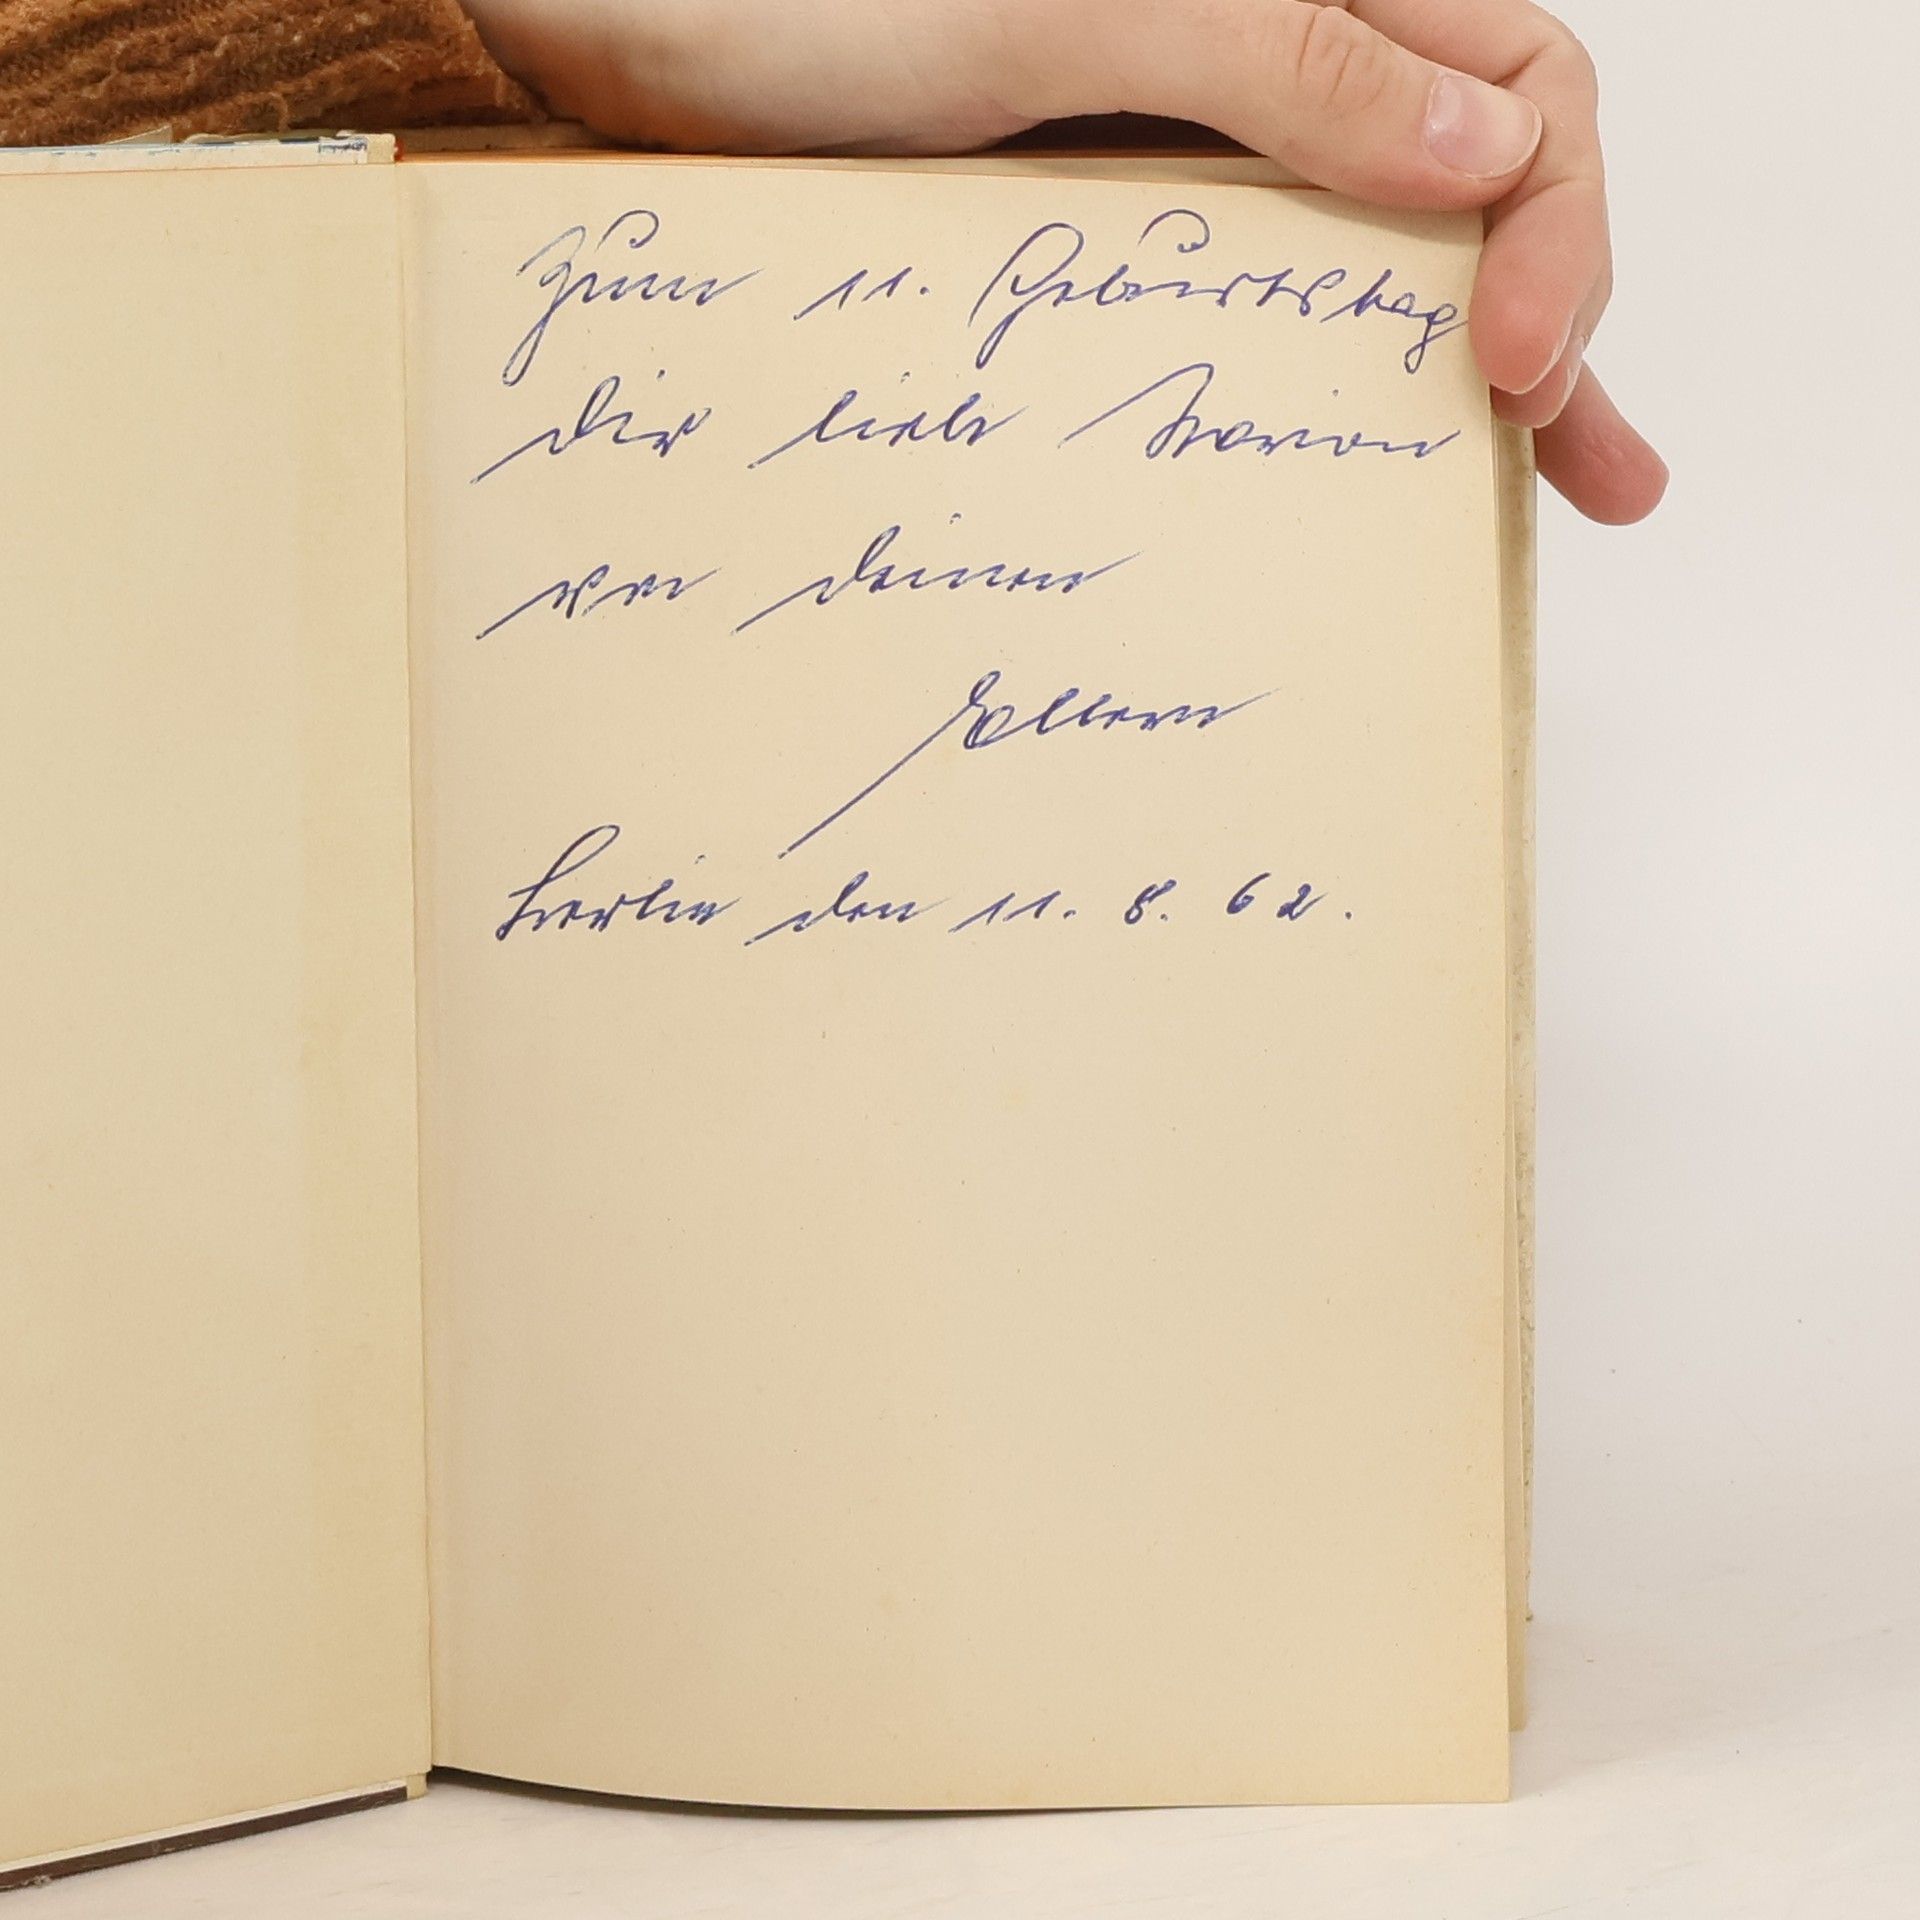 Zum 11. Geburtstag
dir liebe Marion
von deinen
Eltern
Berlin den 11. 8. 62.